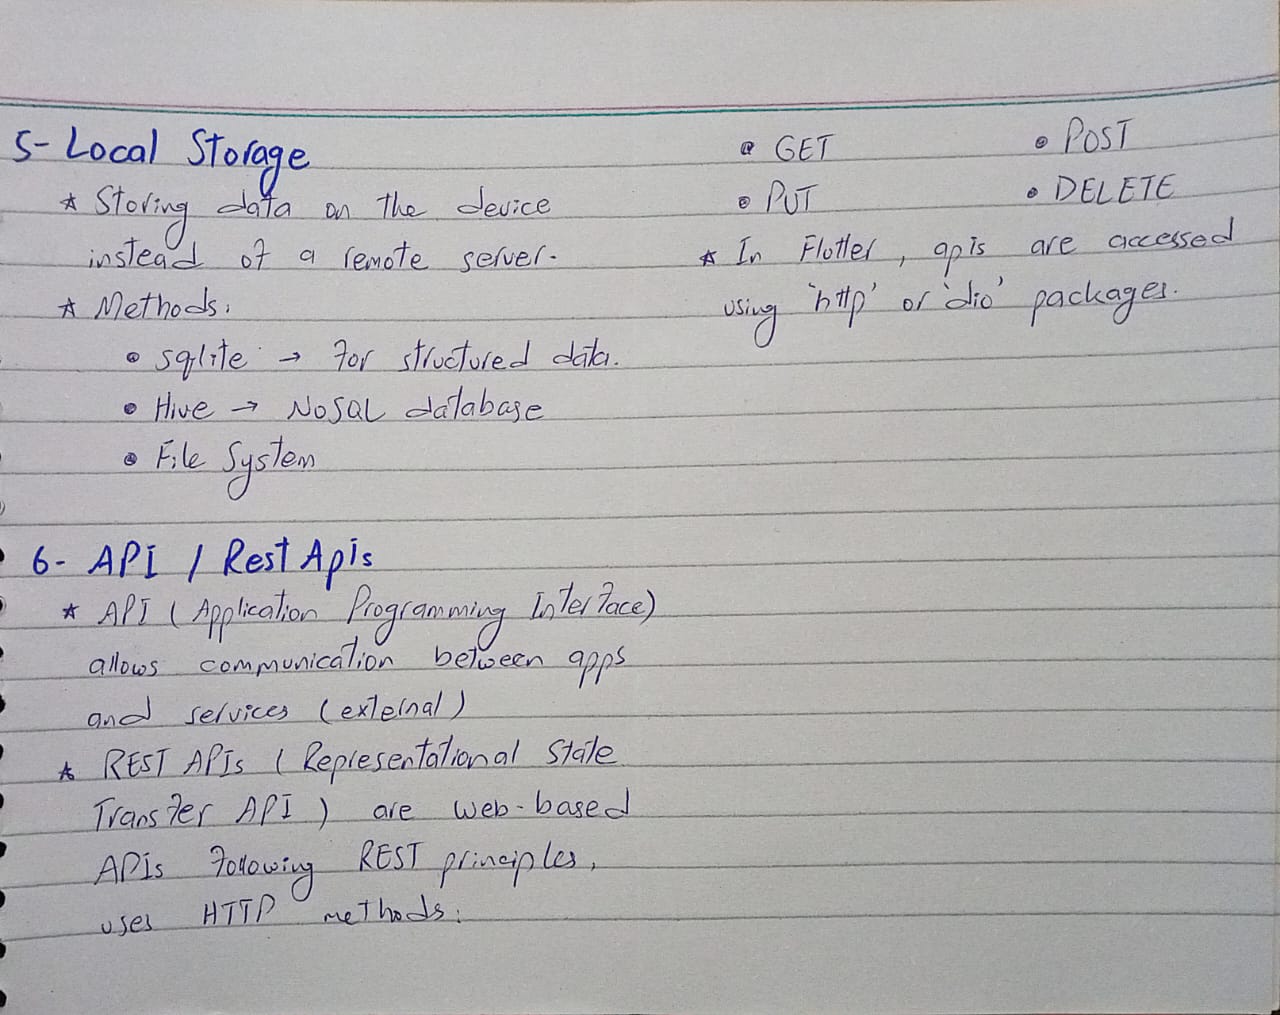 5- Local Storage
* Storing data on the device
instead of a remote server.
* Methods:
• sqlite → for structured data.
• Hive → NoSQL database
• File System
6- API / Rest Apis
* API (Application Programming Interface)
allows communication between apps
and services (external)
* REST APIs (Representational State
Transfer API) are web-based
APIs following REST principles,
uses HTTP methods:
• GET • POST
• PUT • DELETE
* In Flutter, apis are accessed
using 'http' or 'dio' packages.